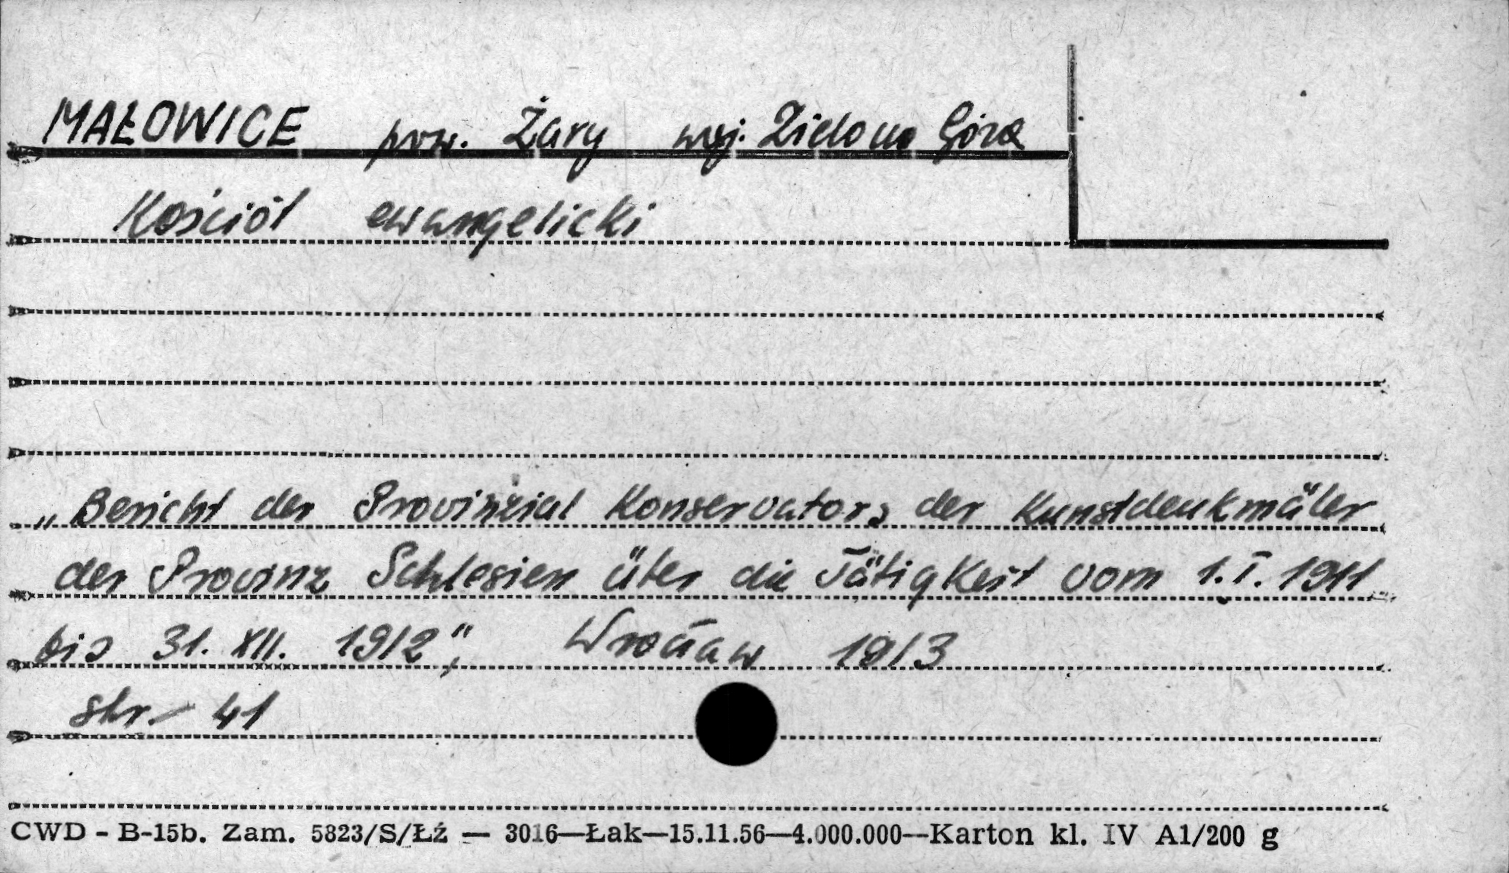 MAŁOWICE pow. Żary woj. Zielona Góra
Kościół ewangelicki
„Bericht des Provinzial Konservators der Kunstdenkmäler
der Provinz Schlesien über die Tätigkeit vom 1.I.1911
bis 31.XII.1912", Wrocław 1913
str. 41
CWD - B-15b. Zam. 5823/S/Łź — 3016—Łak—15.11.56—4.000.000—Karton kl. IV A1/200 g